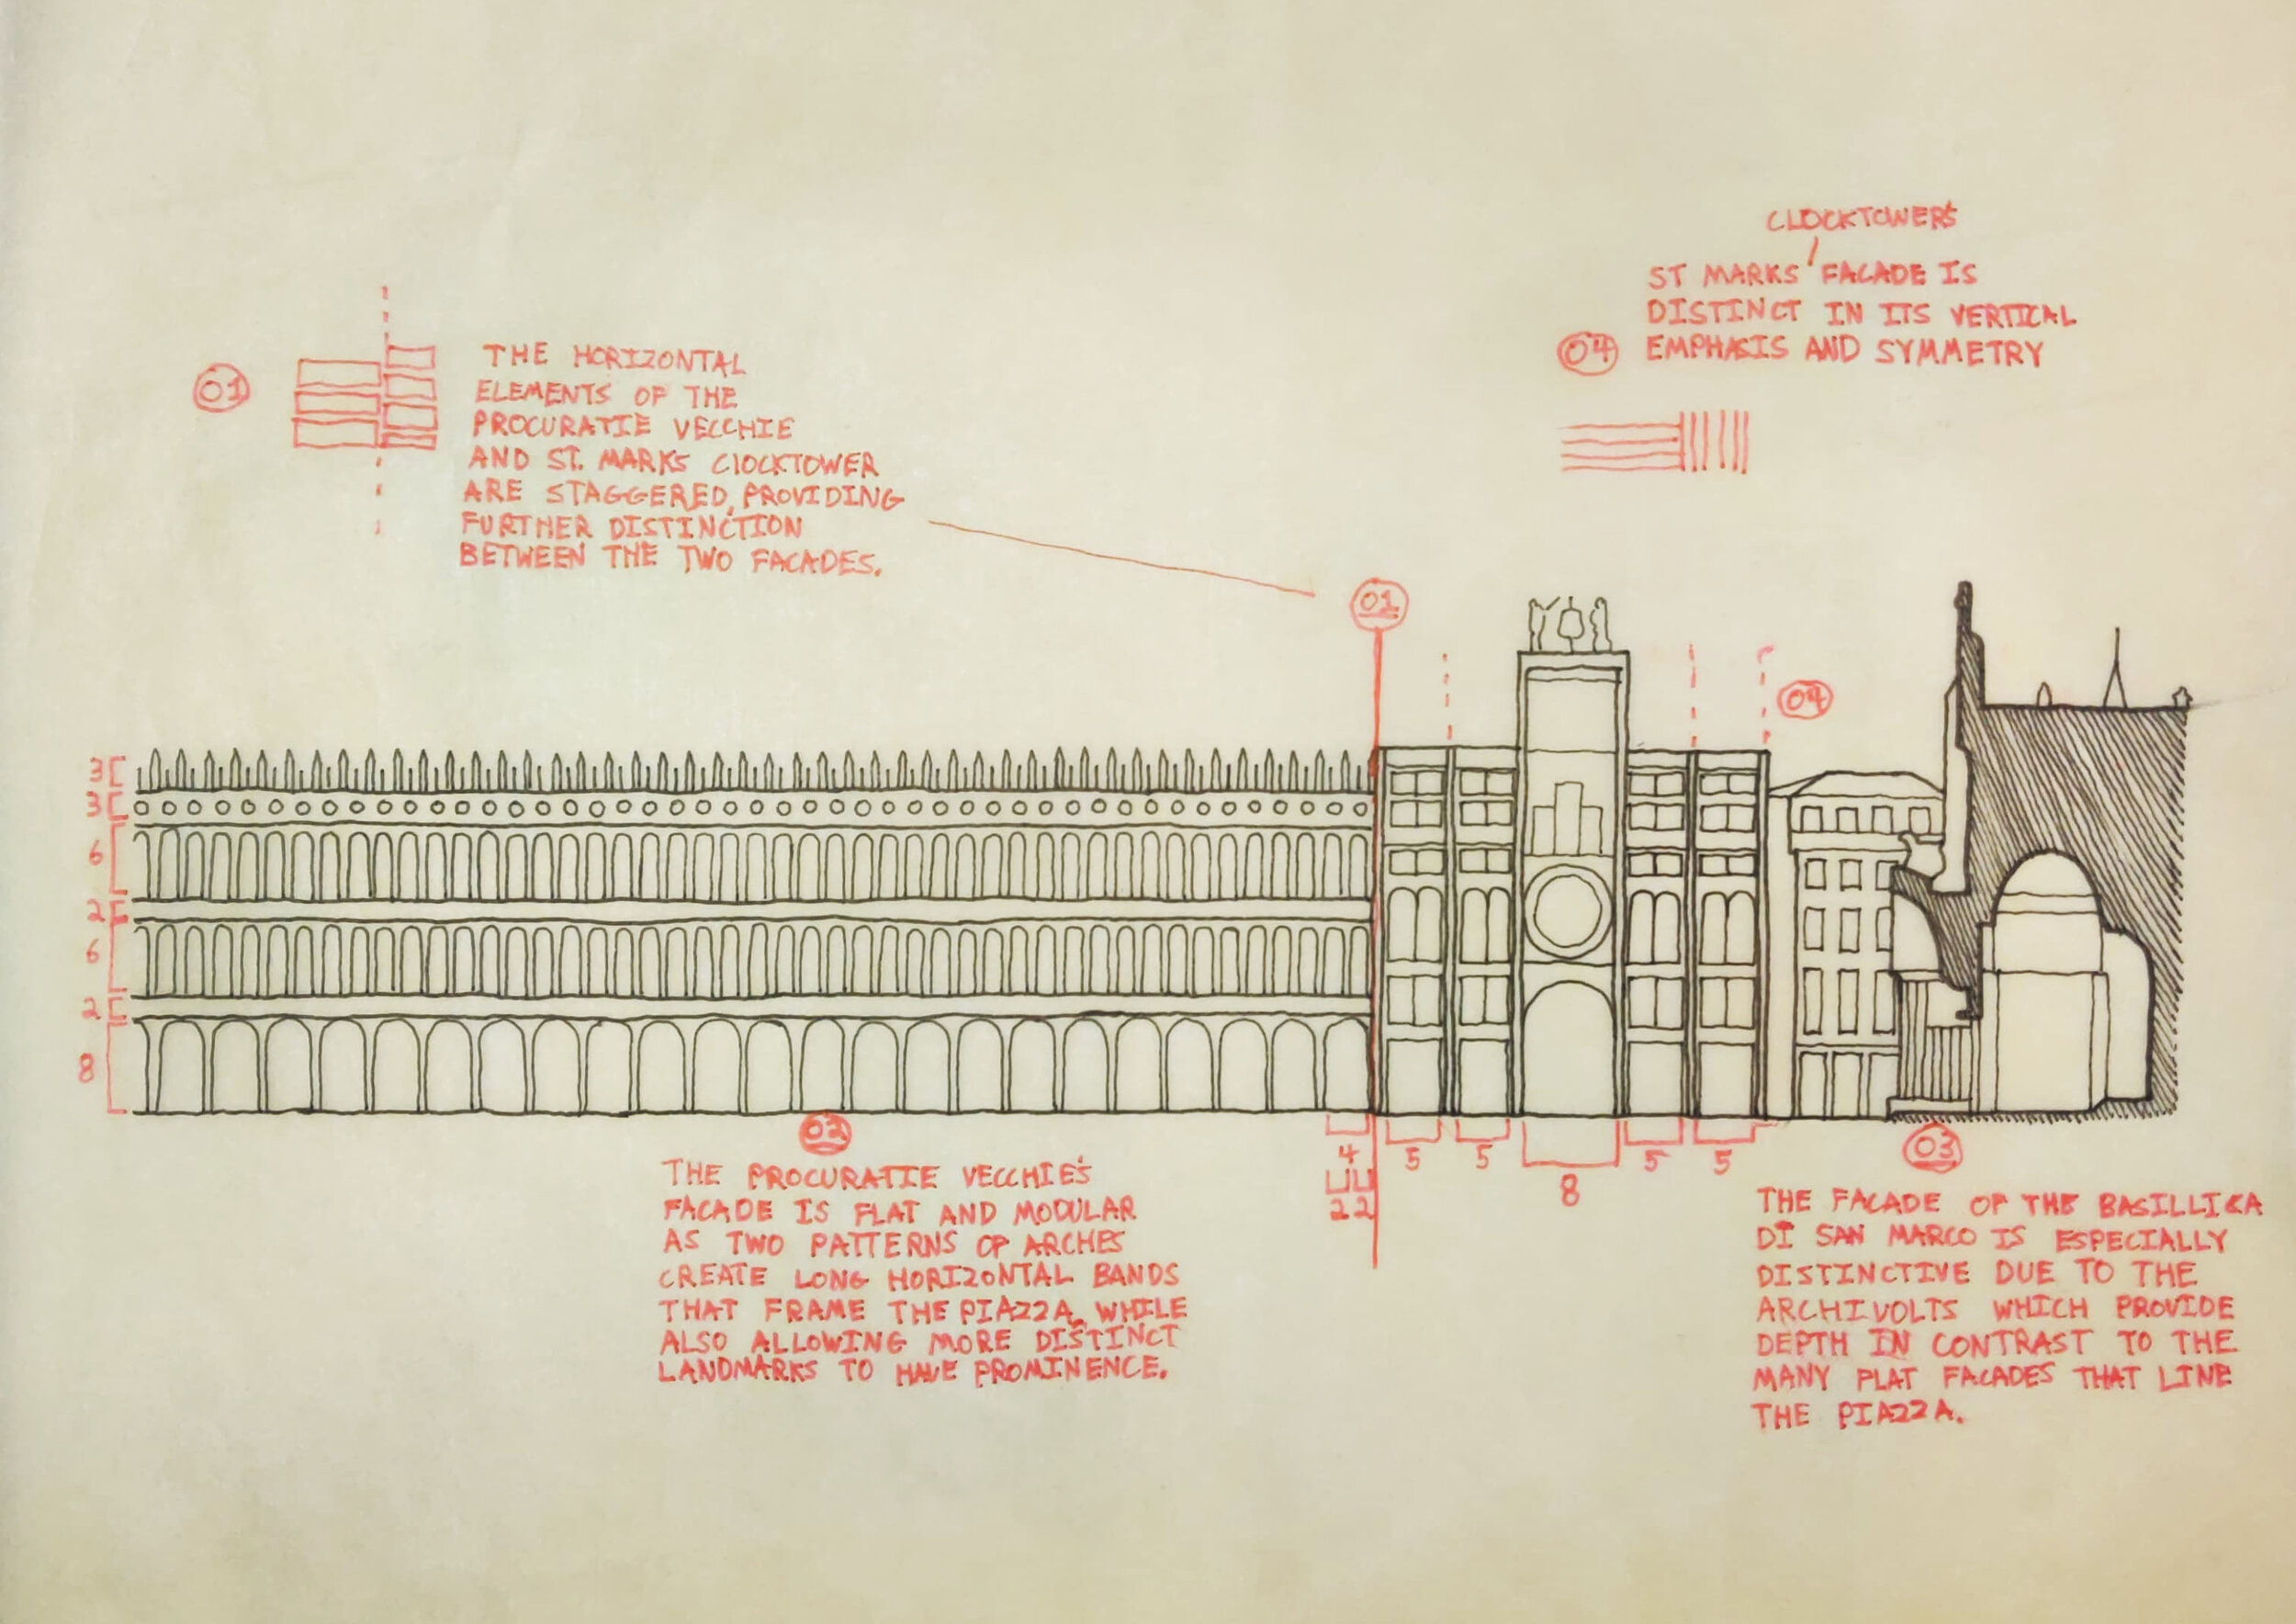 CLOCKTOWER'S
ST MARKS FACADE IS
DISTINCT IN ITS VERTICAL
04 EMPHASIS AND SYMMETRY
01
THE HORIZONTAL
ELEMENTS OF THE
PROCURATIE VECCHIE
AND ST. MARKS CLOCKTOWER
ARE STAGGERED, PROVIDING
FURTHER DISTINCTION
BETWEEN THE TWO FACADES.
01
04
3
3
6
2
6
2
8
02
THE PROCURATIE VECCHIE'S
FACADE IS FLAT AND MODULAR
AS TWO PATTERNS OF ARCHES
CREATE LONG HORIZONTAL BANDS
THAT FRAME THE PIAZZA, WHILE
ALSO ALLOWING MORE DISTINCT
LANDMARKS TO HAVE PROMINENCE.
4
2 2
5 5 8 5 5
03
THE FACADE OF THE BASILLICA
DI SAN MARCO IS ESPECIALLY
DISTINCTIVE DUE TO THE
ARCHIVOLTS WHICH PROVIDE
DEPTH IN CONTRAST TO THE
MANY FLAT FACADES THAT LINE
THE PIAZZA.